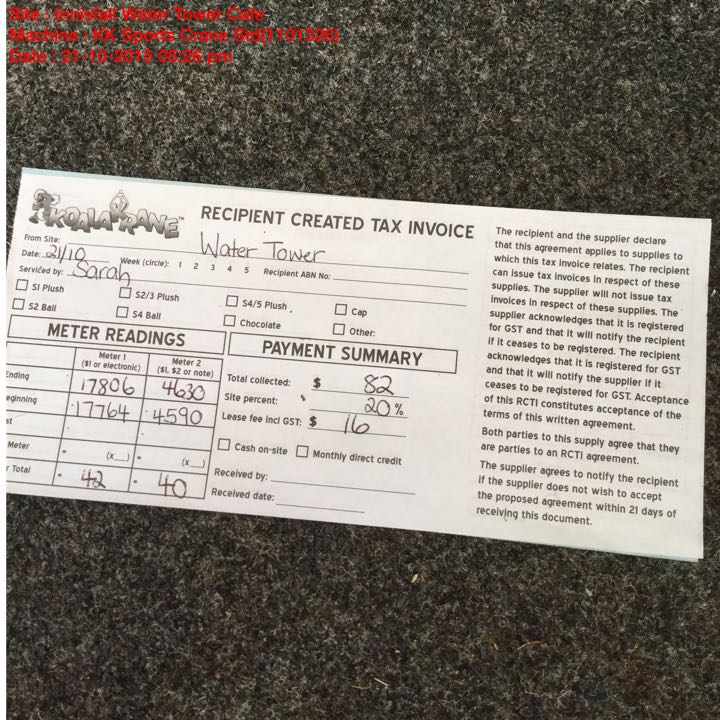 Site : Innisfail Water Tower Cafe
Machine : KK Sports Crane Std(1101326)
Date : 21-10-2015 05:26 pm
KOALA KRANE™
RECIPIENT CREATED TAX INVOICE
From Site: Water Tower
Date: 21/10 Week (circle): 1 2 3 4 5 Recipient ABN No:
Serviced by: Sarah
S1 Plush S2/3 Plush S4/5 Plush Cap
S2 Ball S4 Ball Chocolate Other:
METER READINGS
Meter 1 Meter 2
($1 or electronic) ($1, $2 or note)
Ending 17806 4630
eginning 17764 4590
st - -
Meter = (x__) = (x__)
r Total = 42 = 40
PAYMENT SUMMARY
Total collected: $ 82
Site percent: 20%
Lease fee incl GST: $ 16
Cash on-site Monthly direct credit
Received by:
Received date:
The recipient and the supplier declare
that this agreement applies to supplies to
which this tax invoice relates. The recipient
can issue tax invoices in respect of these
supplies. The supplier will not issue tax
invoices in respect of these supplies. The
supplier acknowledges that it is registered
for GST and that it will notify the recipient
if it ceases to be registered. The recipient
acknowledges that it is registered for GST
and that it will notify the supplier if it
ceases to be registered for GST. Acceptance
of this RCTI constitutes acceptance of the
terms of this written agreement.
Both parties to this supply agree that they
are parties to an RCTI agreement.
The supplier agrees to notify the recipient
if the supplier does not wish to accept
the proposed agreement within 21 days of
receiving this document.